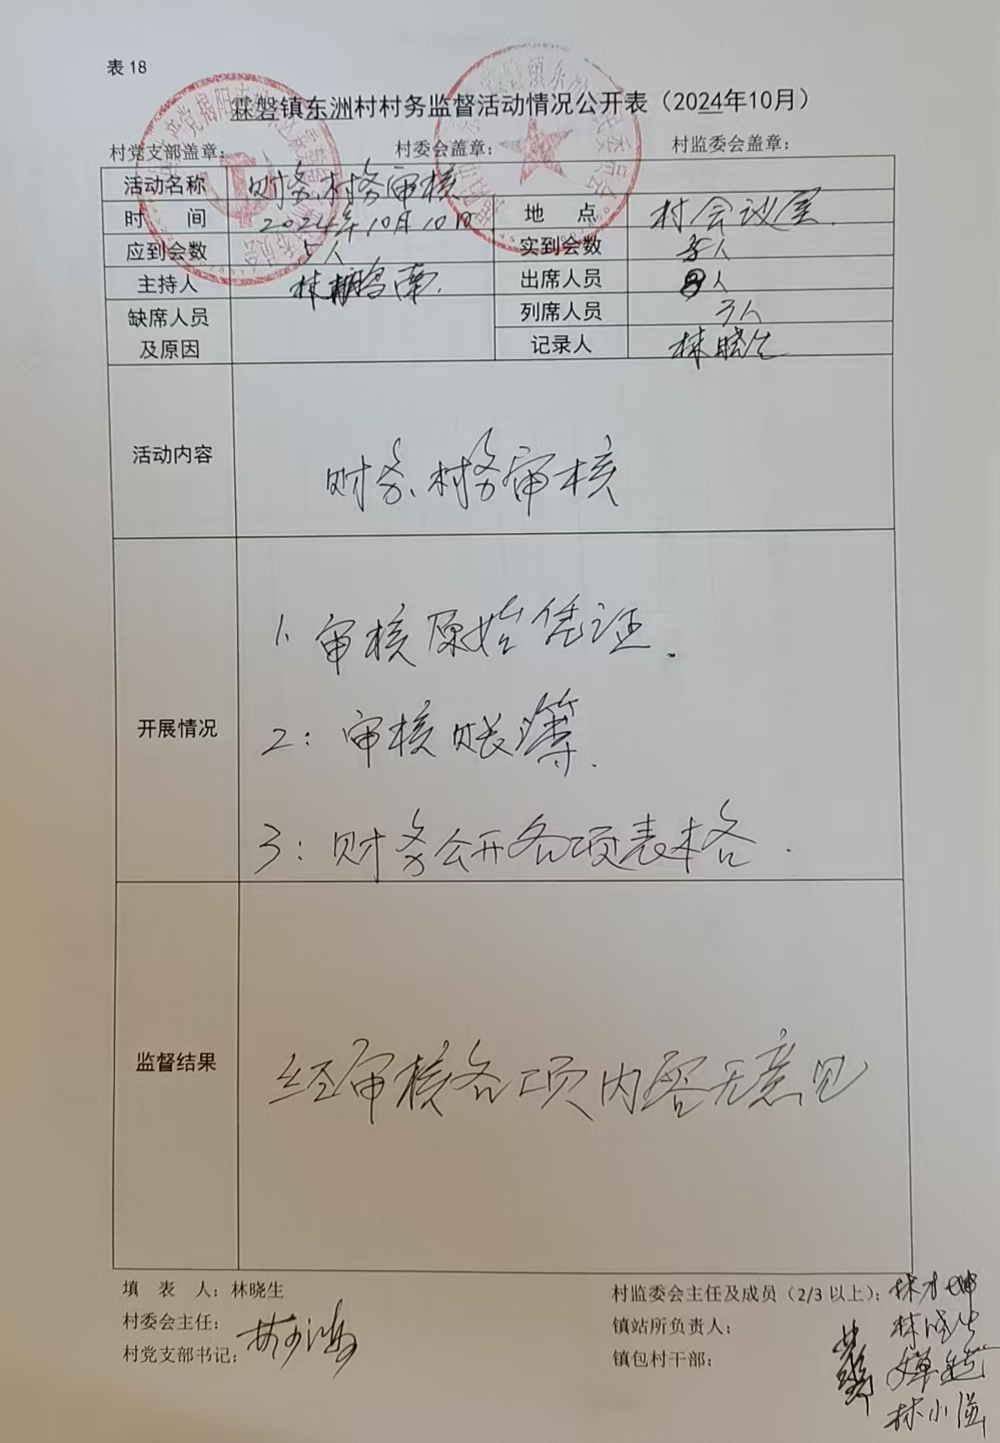 表 18
霖磐镇东洲村村务监督活动情况公开表（2024年10月）
村党支部盖章： 村委会盖章： 村监委会盖章：
活动名称 财务、村务审核
时 间 2024年10月10日 地 点 村会议室.
应到会数 5人 实到会数 5人
主持人 林 南. 出席人员 人
缺席人员及原因 列席人员 3人
记录人 林晓生
活动内容 财务、村务审核
开展情况
1、审核原始凭证.
2：审核账簿.
3：财务公开各项表格.
监督结果 经审核各项内容无意见
填 表 人：林晓生 村监委会主任及成员（2/3 以上）：林
村委会主任： 镇站所负责人： 林晓生
村党支部书记： 镇包村干部：
林小